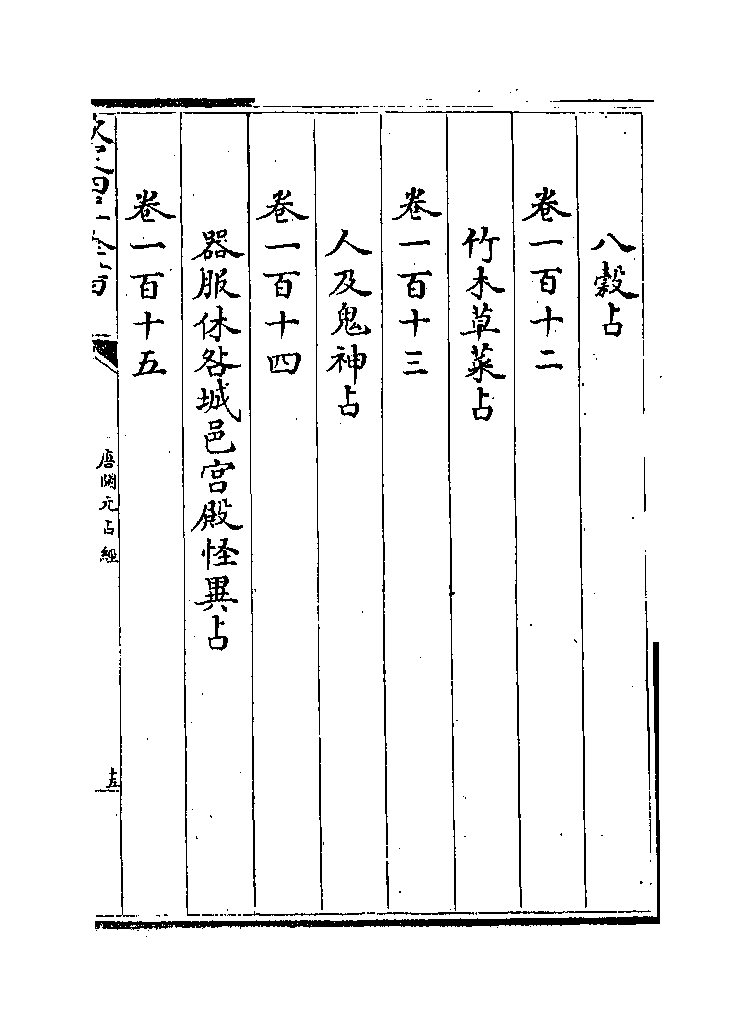 八穀占
卷一百十二
竹木草菜占
卷一百十三
人及鬼神占
卷一百十四
器服休咎城邑宫殿怪異占
卷一百十五
唐開元占經
十五